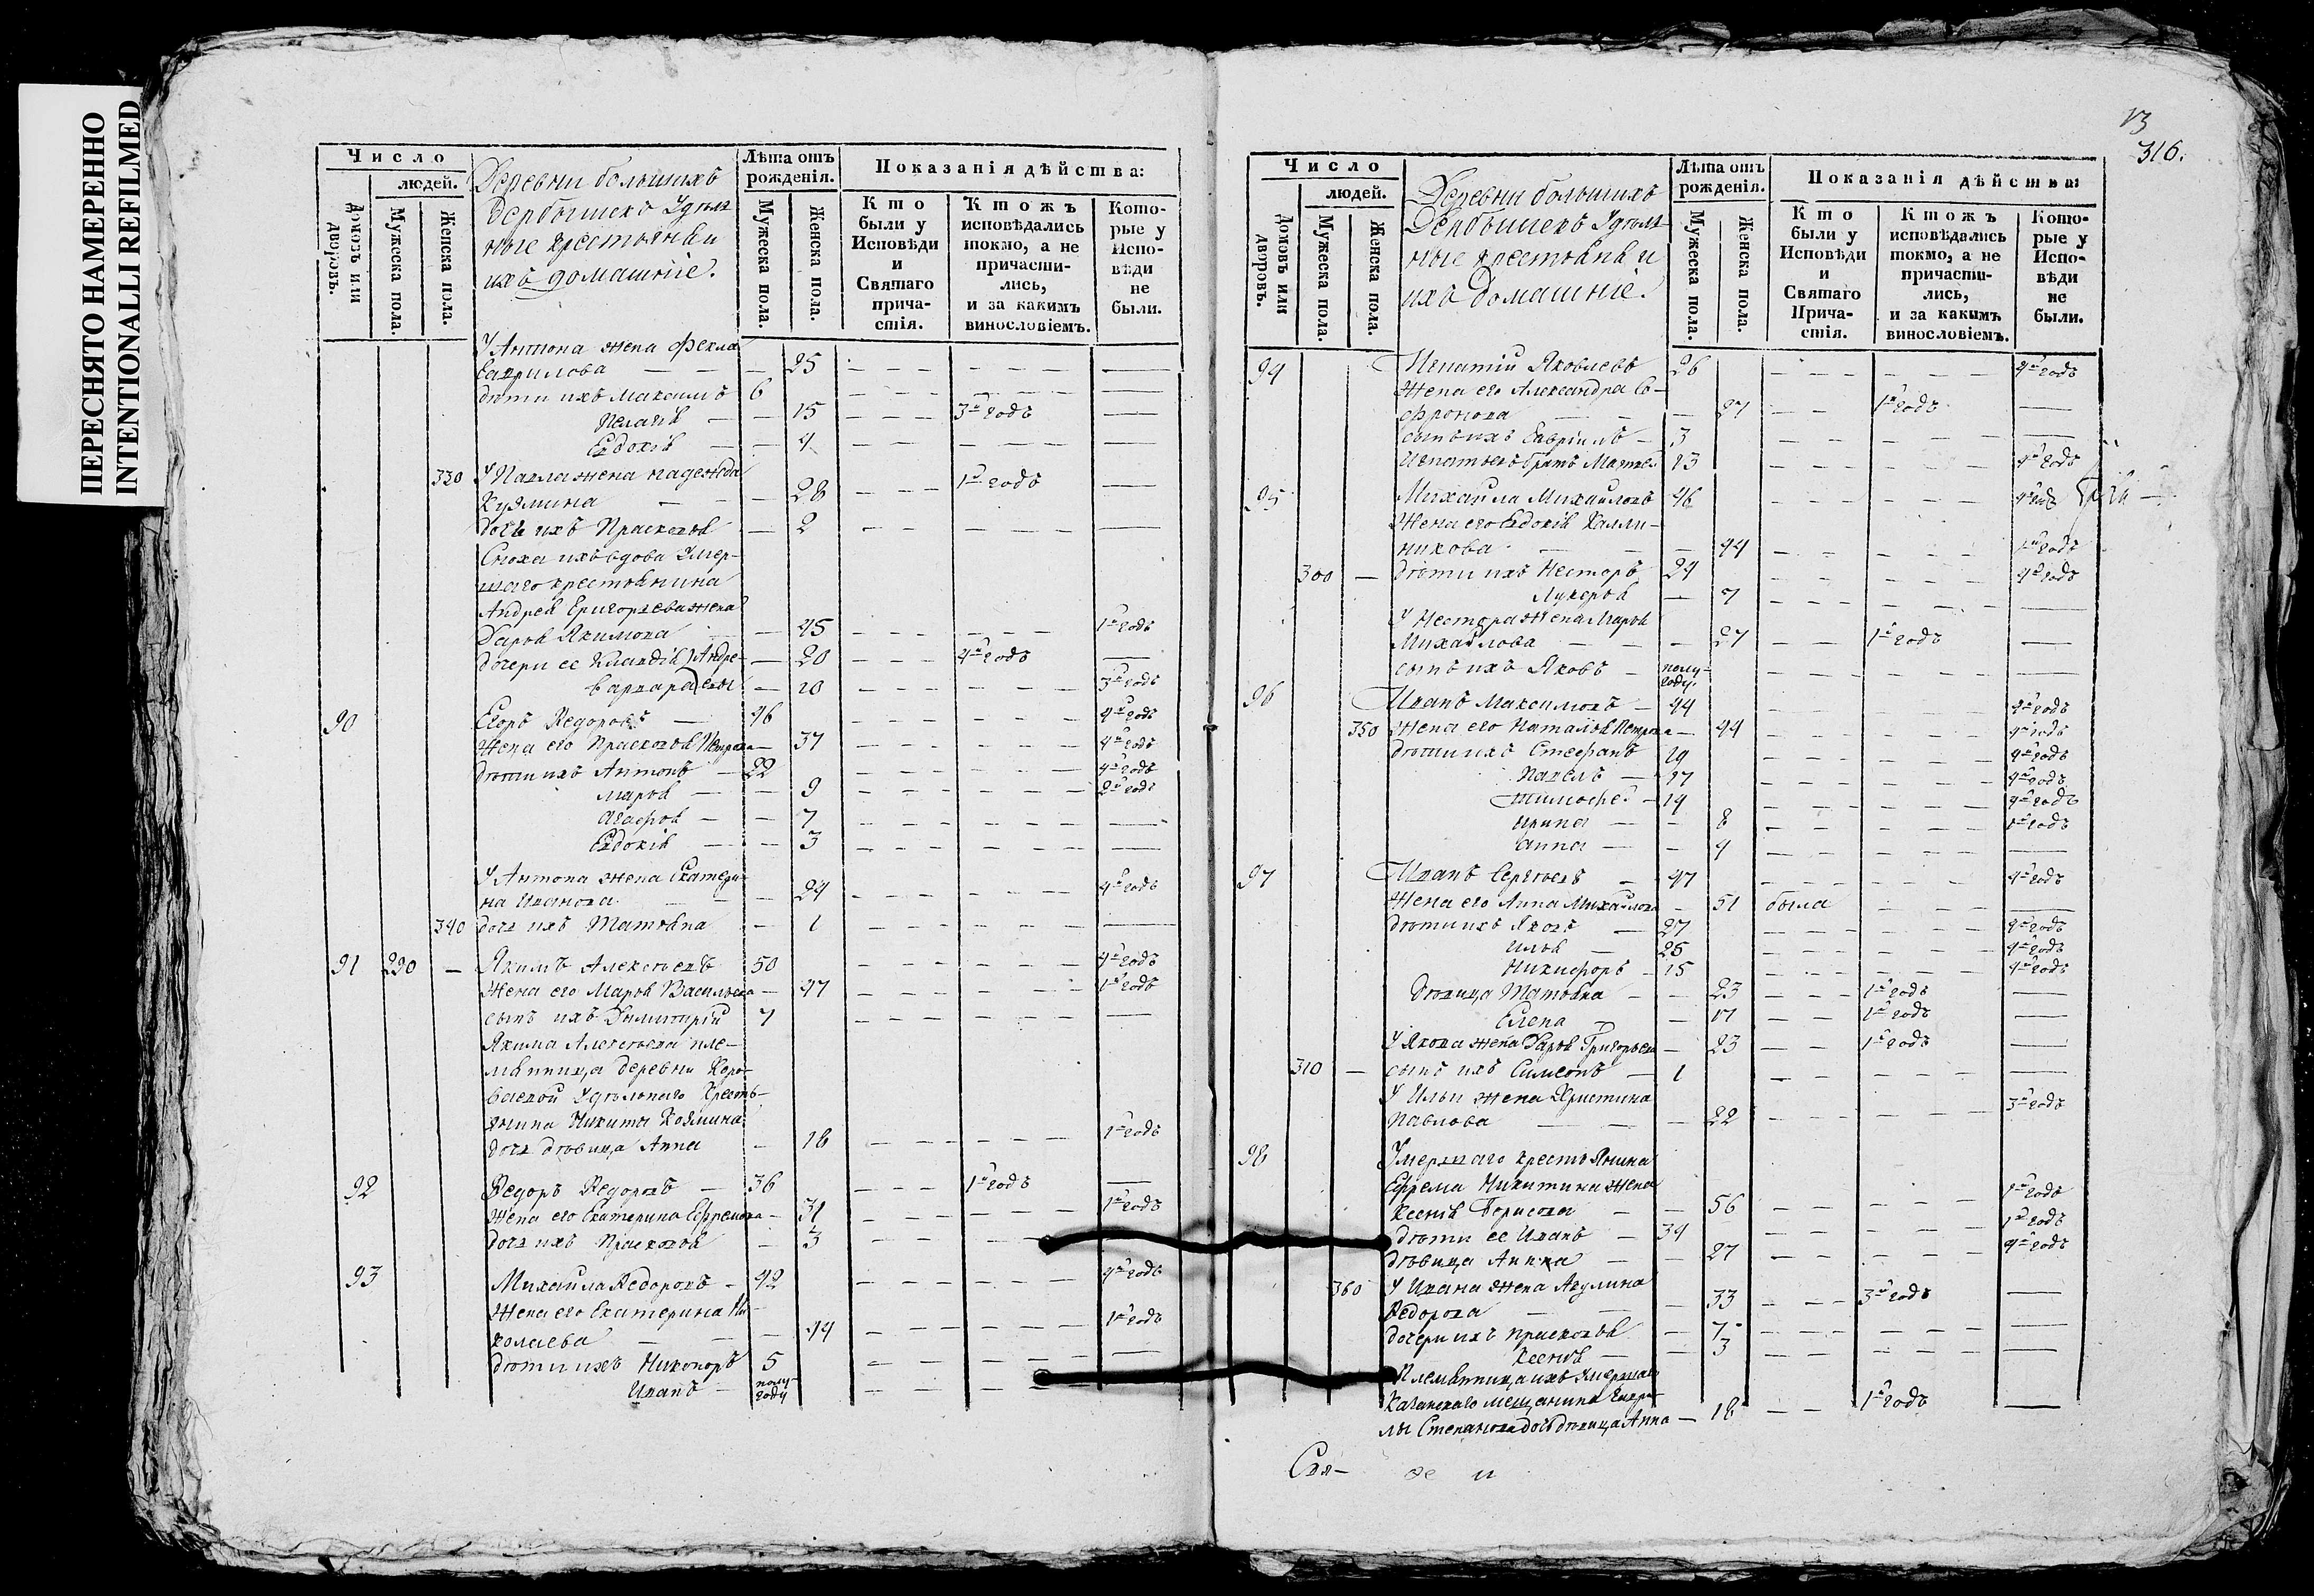 ПЕРЕСНЯТО НАМЕРЕННО
INTENTIONALLI REFILMED
Число
людей.
Домовъ или дворовъ.
Мужеска пола.
Женска пола.
Деревни большихъ
Дербышекъ Удѣль
ные крестьяне и
ихъ домашніе.
Лѣта отъ рожденія.
Мужеска пола.
Женска пола.
Показанія дѣйства:
Кто были у Исповѣди и Святаго причастія.
Ктожъ исповѣдались токмо, а не причастились, и за какимъ винословіемъ.
Которые у Исповѣди не были.
У Антона жена Фекла
Гаврилова — 25
дѣти ихъ Максимъ 6
Пелагія — 15 3й годъ
Евдокія — 4
330 У Павла жена Надежда 1й годъ
Кузмина — 28
дочь ихъ Праскевія — 2
Сноха ихъ вдова Умер-
шаго крестьянина
Андрея Григорьева жена
Дарья Якимова — 45 1й годъ
дочери ее Клавдія Андре- — 20 4й годъ
Варвара евы — 10 3й годъ
90 Егоръ Ѳедоровъ — 46 4й годъ
Жена его Прасковья Петрова — 37 4й годъ
дѣти ихъ Антонъ — 22 4й годъ
Марья — 9 2й годъ
Агафья — 7
Евдокія — 3
У Антона жена Екатери-
на Иванова — 24 4й годъ
340 дочь ихъ Татьяна — 1
91 290 — Якимъ Алексѣевъ 50 4й годъ
Жена его Марья Васильева — 47 1й годъ
сынъ ихъ Димитрій 7
Якима Алексѣева пле-
мянница деревни
Удѣльнаго Кресть-
янина Никиты Козмина
дочь дѣвица Анна — 18 1й годъ
92 Ѳедоръ Ѳедоровъ — 36 1й годъ
Жена его Екатерина Ефремова — 31 1й годъ
дочь ихъ Прасковья — 3
93 Михайла Ѳедоровъ — 42 4й годъ
Жена его Екатерина Ни-
колаева — 44 1й годъ
дѣти ихъ Никоноръ 5
Иванъ — полу-
году
13
316.
Число
людей.
Домовъ или дворовъ.
Мужеска пола.
Женска пола.
Деревни большихъ
Дербышекъ Удѣль
ные крестьяне и
ихъ домашніе.
Лѣта отъ рожденія.
Мужеска пола.
Женска пола.
Показанія дѣйства:
Кто были у Исповѣди и Святаго Причастія.
Ктожъ исповѣдались токмо, а не причастились, и за какимъ винословіемъ.
Которые у Исповѣди не были.
94 Игнатій Яковлевъ 26 4й годъ
Жена его Александра Со-
фронова — 27 1й годъ
сынъ ихъ Гавріилъ — 3
Игнатьевъ братъ Матвей 13 4й годъ
95 Михайла Михайловъ 46 4й годъ
Жена его Евдокія Калли-
никова — 44 1й годъ
300 — дѣти ихъ Несторъ 24 4й годъ
Лукерья — 7
У Нестора жена Марья
Михайлова — 27 1й годъ
сынъ ихъ Яковъ — полу-
году.
96 Иванъ Максимовъ — 44 4й годъ
350 Жена его Наталья Петрова — 44 4й годъ
дѣти ихъ Стефанъ 19 4й годъ
Павелъ — 17 4й годъ
Тимофей — 14 4й годъ
Ирина — 8 1й годъ
Анна — 4
97 Иванъ Сергѣевъ — 47 4й годъ
Жена его Анна Михайлова — 51 была
дѣти ихъ Яковъ — 27 4й годъ
Илья — 25 4й годъ
Никифоръ — 15 4й годъ
дѣвица Татьяна — 23 1й годъ
Елена — 17 1й годъ
У Якова жена Дарья Григорьева — 23 1й годъ
310 — сынъ ихъ Симеонъ — 1
У Ильи жена Христина
Павлова — 22 3й годъ
98 Умершаго крестьянина
Ефрема Никитина жена
Ксенія Борисова — 56 1й годъ
дѣти ее Иванъ — 34 1й годъ
дѣвица Анна — 27 4й годъ
360 У Ивана жена Акулина
Ѳедорова — 33 3й годъ
дочери ихъ Прасковья — 7
Ксенія — 3
Племянница ихъ Умершаго
Казанскаго мещанина
Степанова дочь дѣвица Анна — 18 1й годъ